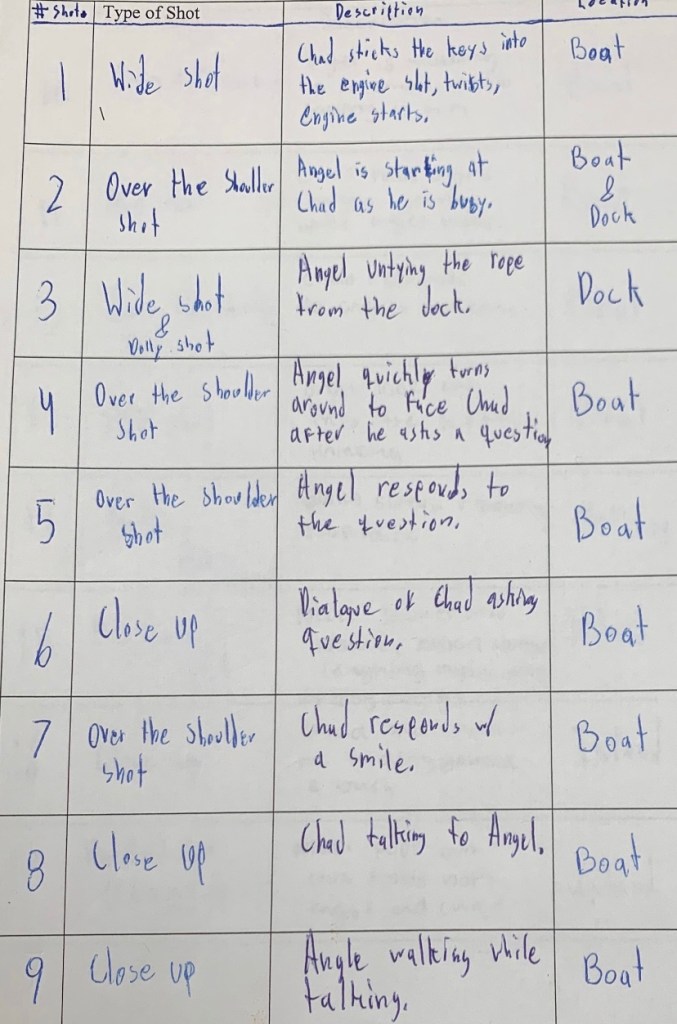 # Shots Type of Shot Description Location
1 Wide shot Chad sticks the keys into Boat
the engine slot, twists,
Engine starts.
2 Over the Shouller Angel is staring at Boat
shot Chad as he is busy. &
Dock
3 Wide shot Angel Untying the rope Dock
& from the dock.
Dolly shot
4 Over the Shoulder Angel quickly turns Boat
Shot around to face Chad
after he asks a question
5 Over the Shoulder Angel responds to Boat
Shot the question.
6 Close up Dialogue of Chad asking Boat
question.
7 Over the Shoulder Chad responds w/ Boat
shot a smile.
8 Close up Chad talking to Angel. Boat
9 Close up Angle walking while Boat
talking.